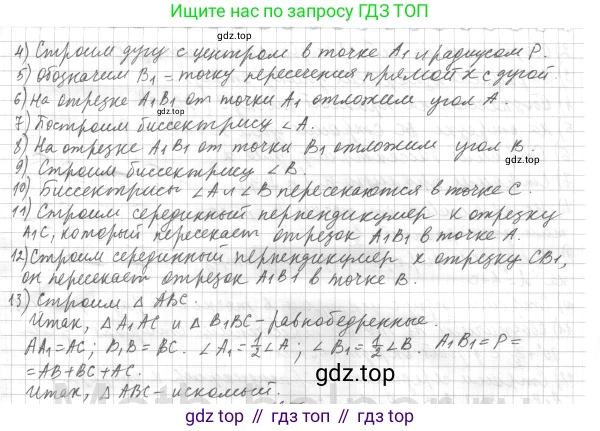 Ищите нас по запросу ГДЗ ТОП
4) Строим дугу с центром в точке A₁ и радиусом P.
5) Обозначим B₁ – точку пересечения прямой x с дугой.
6) На отрезке A₁B₁ от точки A₁ отложим угол A.
7) Построим биссектрису ∠A.
8) На отрезке A₁B₁ от точки B₁ отложим угол B.
9) Строим биссектрису ∠B.
10) Биссектрисы ∠A и ∠B пересекаются в точке C.
11) Строим серединный перпендикуляр к отрезку
A₁C, который пересекает отрезок A₁B₁ в точке A.
12) Строим серединный перпендикуляр к отрезку CB₁,
он пересекает отрезок A₁B1 в точке B.
13) Строим △ ABC.
Итак, △ A₁AC и △ B₁BC – равнобедренные.
AA₁=AC; B₁B = BC. ∠A₁= ½∠A; ∠B₁= ½∠B. A₁B₁=P=
=AB+BC+AC.
Итак, △ ABC – искомый.
gdz.top // гдз.top // гдз.топ